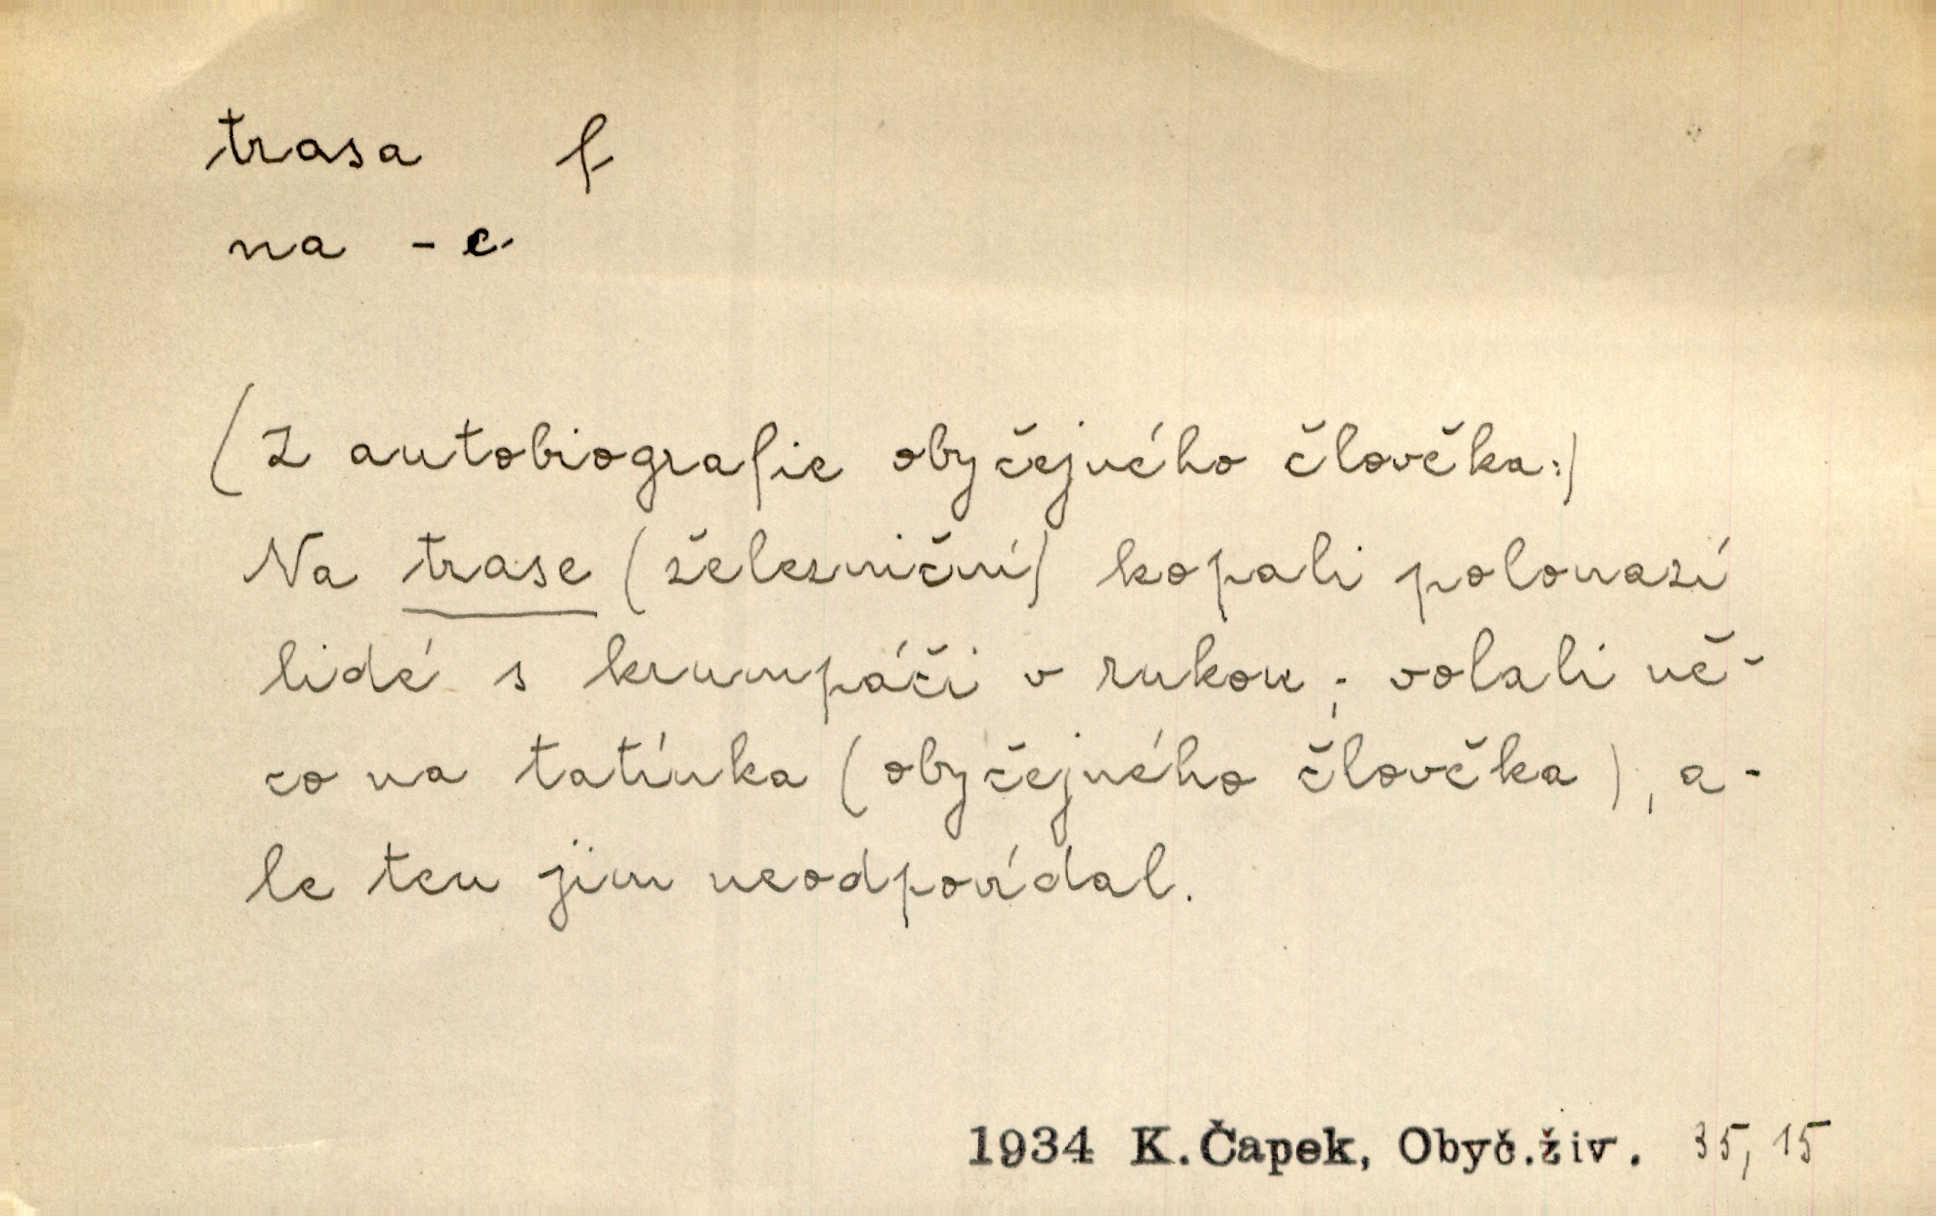 trasa f
na -e
(Z autobiografie obyčejného člověka:)
Na trase (železniční) kopali polonazí
lidé s krumpáči v rukou; volali ně-
co na tatínka (obyčejného člověka), a-
le ten jim neodpovídal.
1934 K.Čapek, Obyč.živ. 35,15